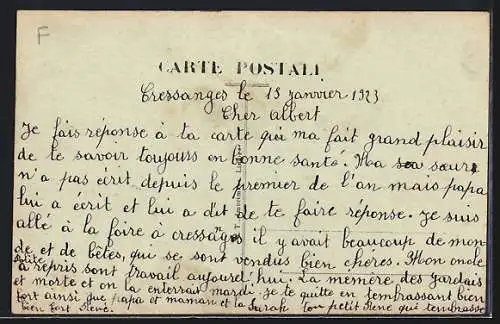 F
CARTE POSTALE
Cressanges le 15 janvier 1923
Cher Albert
Je fais réponse à ta carte qui ma fait grand plaisir
de te savoir toujours en bonne santé. Ma sœur
n'a pas écrit depuis le premier de l'an mais papa
lui a écrit et lui a dit de te faire réponse. Je suis
allé à la foire à cressanges il y avait beaucoup de mon
de et de bêtes, qui se sont vendus bien chères. Mon oncle
à répris sont travail aujourd'hui. La mémère des Jardais
et morte et on la enterrait mardi. je te quitte en t'embrassant bien
fort ainsi que papa et maman et la
bien fort René. ton petit René qui t'embrasse